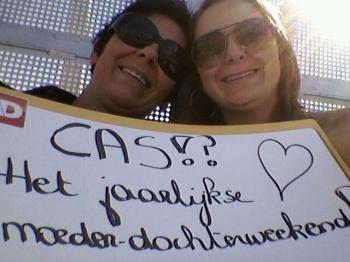 CAS!??
Het jaarlijkse
moeder-dochterweekend!